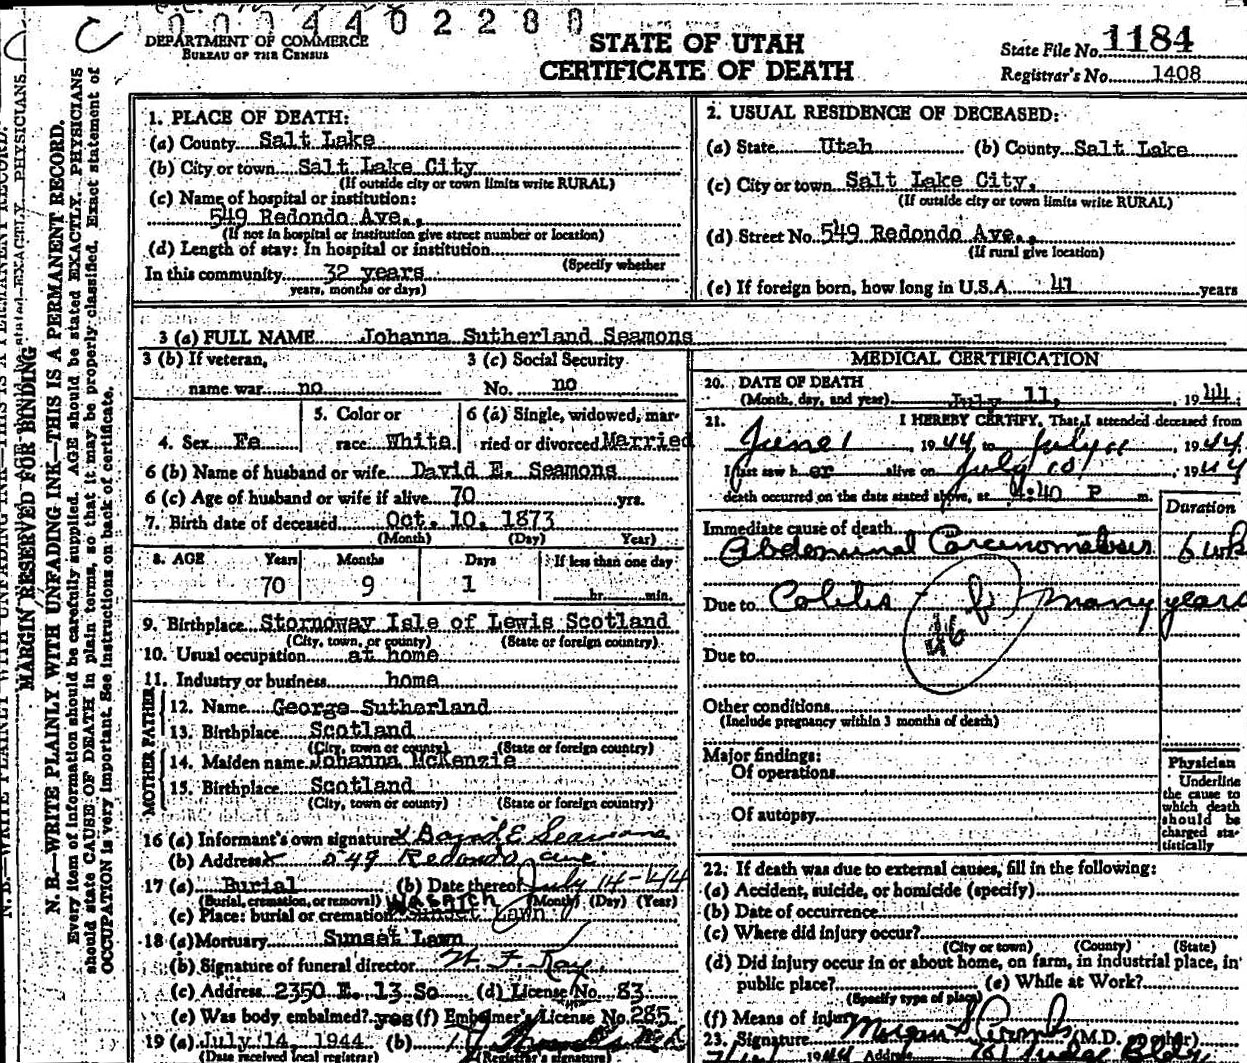 0004402280
DEPARTMENT OF COMMERCE
BUREAU OF THE CENSUS
STATE OF UTAH
CERTIFICATE OF DEATH
State File No. 1184
Registrar's No. 1408
MARGIN RESERVED FOR BINDING
N. B.—WRITE PLAINLY WITH UNFADING INK—THIS IS A PERMANENT RECORD.
Every item of information should be carefully supplied. AGE should be stated EXACTLY. PHYSICIANS
should state CAUSE OF DEATH in plain terms, so that it may be properly classified. Exact statement of
OCCUPATION is very important. See instructions on back of certificate.
1. PLACE OF DEATH:
(a) County Salt Lake
(b) City or town Salt Lake City
(If outside city or town limits write RURAL)
(c) Name of hospital or institution:
549 Redondo Ave.,
(If not in hospital or institution give street number or location)
(d) Length of stay: In hospital or institution
(Specify whether
In this community 32 years
years, months or days)
2. USUAL RESIDENCE OF DECEASED:
(a) State Utah (b) County Salt Lake
(c) City or town Salt Lake City.
(If outside city or town limits write RURAL)
(d) Street No. 549 Redondo Ave.,
(If rural give location)
(e) If foreign born, how long in U.S.A. 47 years
3 (a) FULL NAME Johanna Sutherland Seamons
3 (b) If veteran, 3 (c) Social Security
name war no No. no
5. Color or 6 (a) Single, widowed, mar-
4. Sex Fe race White ried or divorced Married
6 (b) Name of husband or wife David E. Seamons
6 (c) Age of husband or wife if alive 70 yrs.
7. Birth date of deceased Oct. 10, 1873
(Month) (Day) Year)
8. AGE Years Months Days If less than one day
70 9 1 hr. min.
9. Birthplace Stornoway Isle of Lewis Scotland
(City, town, or county) (State or foreign country)
10. Usual occupation at home
11. Industry or business home
FATHER
12. Name George Sutherland
13. Birthplace Scotland
(City, town or county) (State or foreign country)
MOTHER
14. Maiden name Johanna McKenzie
15. Birthplace Scotland
(City, town or county) (State or foreign country)
16 (a) Informant's own signature x E Seamons
(b) Address x 549 Redondo ave
17 (a) Burial (b) Date thereof July 14-44
(Burial, cremation, or removal) (Month) (Day) (Year)
WASATCH
(c) Place: burial or cremation Sunset Lawn
18 (a) Mortuary Sunset Lawn
(b) Signature of funeral director
(c) Address 2350 E. 13 So (d) License No. 83
(e) Was body embalmed? yes (f) Embalmer's License No. 285
19 (a) July 14, 1944 (b)
(Date received local registrar) (Registrar's signature)
MEDICAL CERTIFICATION
20. DATE OF DEATH
(Month, day, and year) July 11, 1944
21. I HEREBY CERTIFY, That I attended deceased from
June 1 1944 to July 11 1944
I last saw her alive on July 10 1944
death occurred on the date stated above, at 4:40 P m.
Duration
Immediate cause of death
Abdominal Carcinomatosis 6 wks
Due to Colitis many years
46 f
Due to
Other conditions
(Include pregnancy within 3 months of death)
Major findings:
Of operations
Of autopsy
Physician
Underline
the cause to
which death
should be
charged sta-
tistically
22. If death was due to external causes, fill in the following:
(a) Accident, suicide, or homicide (specify)
(b) Date of occurrence
(c) Where did injury occur?
(City or town) (County) (State)
(d) Did injury occur in or about home, on farm, in industrial place, in
public place? (e) While at Work?
(Specify type of place)
(f) Means of injury
23. Signature (M.D. other)
1944 Address